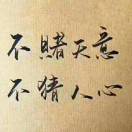 不賭天意
不猜人心